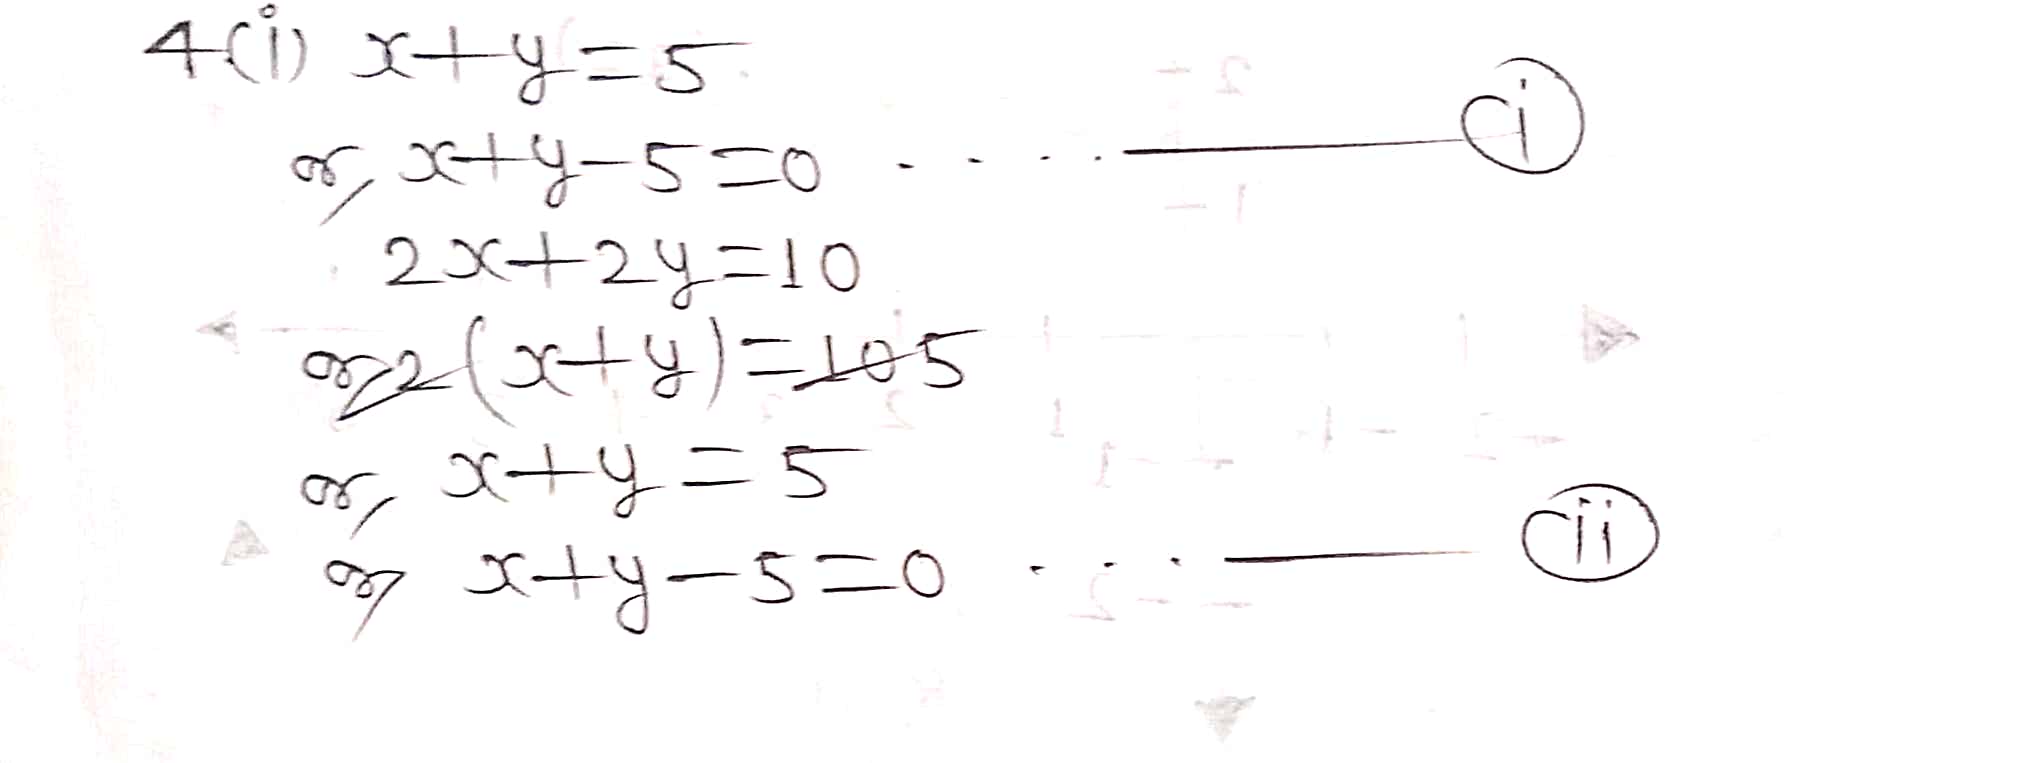 4(i) x+y=5
or, x+y-5=0 ....——— (i)
2x+2y=10
or, 2(x+y)=10 5
or, x+y=5
or, x+y-5=0 ...——— (ii)